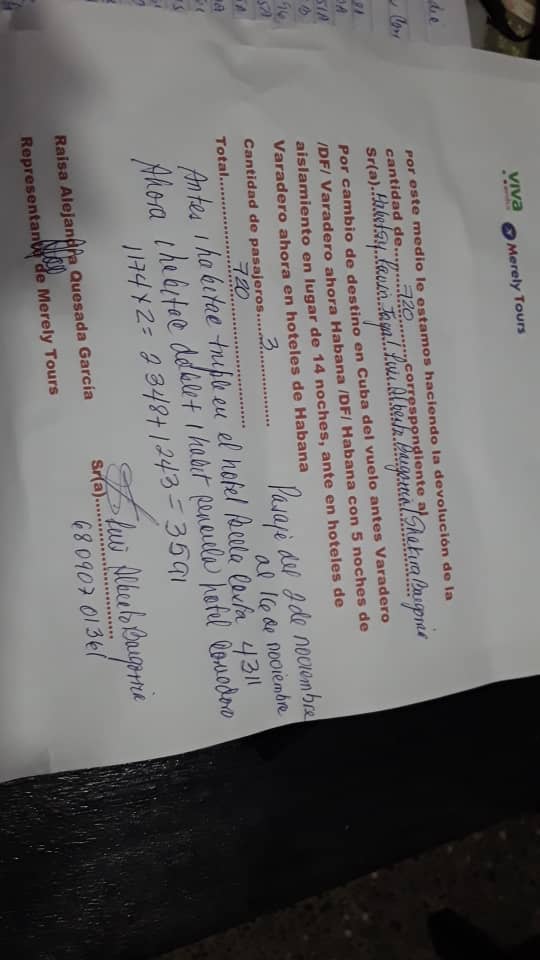 viva Merely Tours
Por este medio le estamos haciendo la devolución de la
cantidad de......720......correspondiente al
Sr(a)... / Luis Alberto / Shakira
Por cambio de destino en Cuba del vuelo antes Varadero
/DF/ Varadero ahora Habana /DF/ Habana con 5 noches de
aislamiento en lugar de 14 noches, ante en hoteles de
Varadero ahora en hoteles de Habana
Pasaje del 2 de noviembre
al 16 de noviembre
Cantidad de pasajeros......3......
Total......720......
Antes 1 habitac triple en el hotel 4311
Ahora 1 habitac doble + 1 habit sencilla hotel Comodoro
1174 x 2 = 2348 + 1243 = 3591
Raisa Alejandra Quesada García
Representante de Merely Tours
Sr(a)... Luis Alberto
68090701361